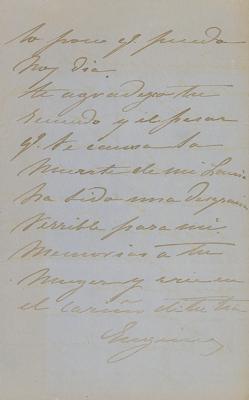 lo poco q. puedo
hoy dia.
te agradezco tu
recuerdo y el pesar
q. te causa la
muerte de mi Louis
ha sido una desgracia
terrible para mi.
Memorias á tu
muger y cree en
el cariño de tu tia
Eugenia